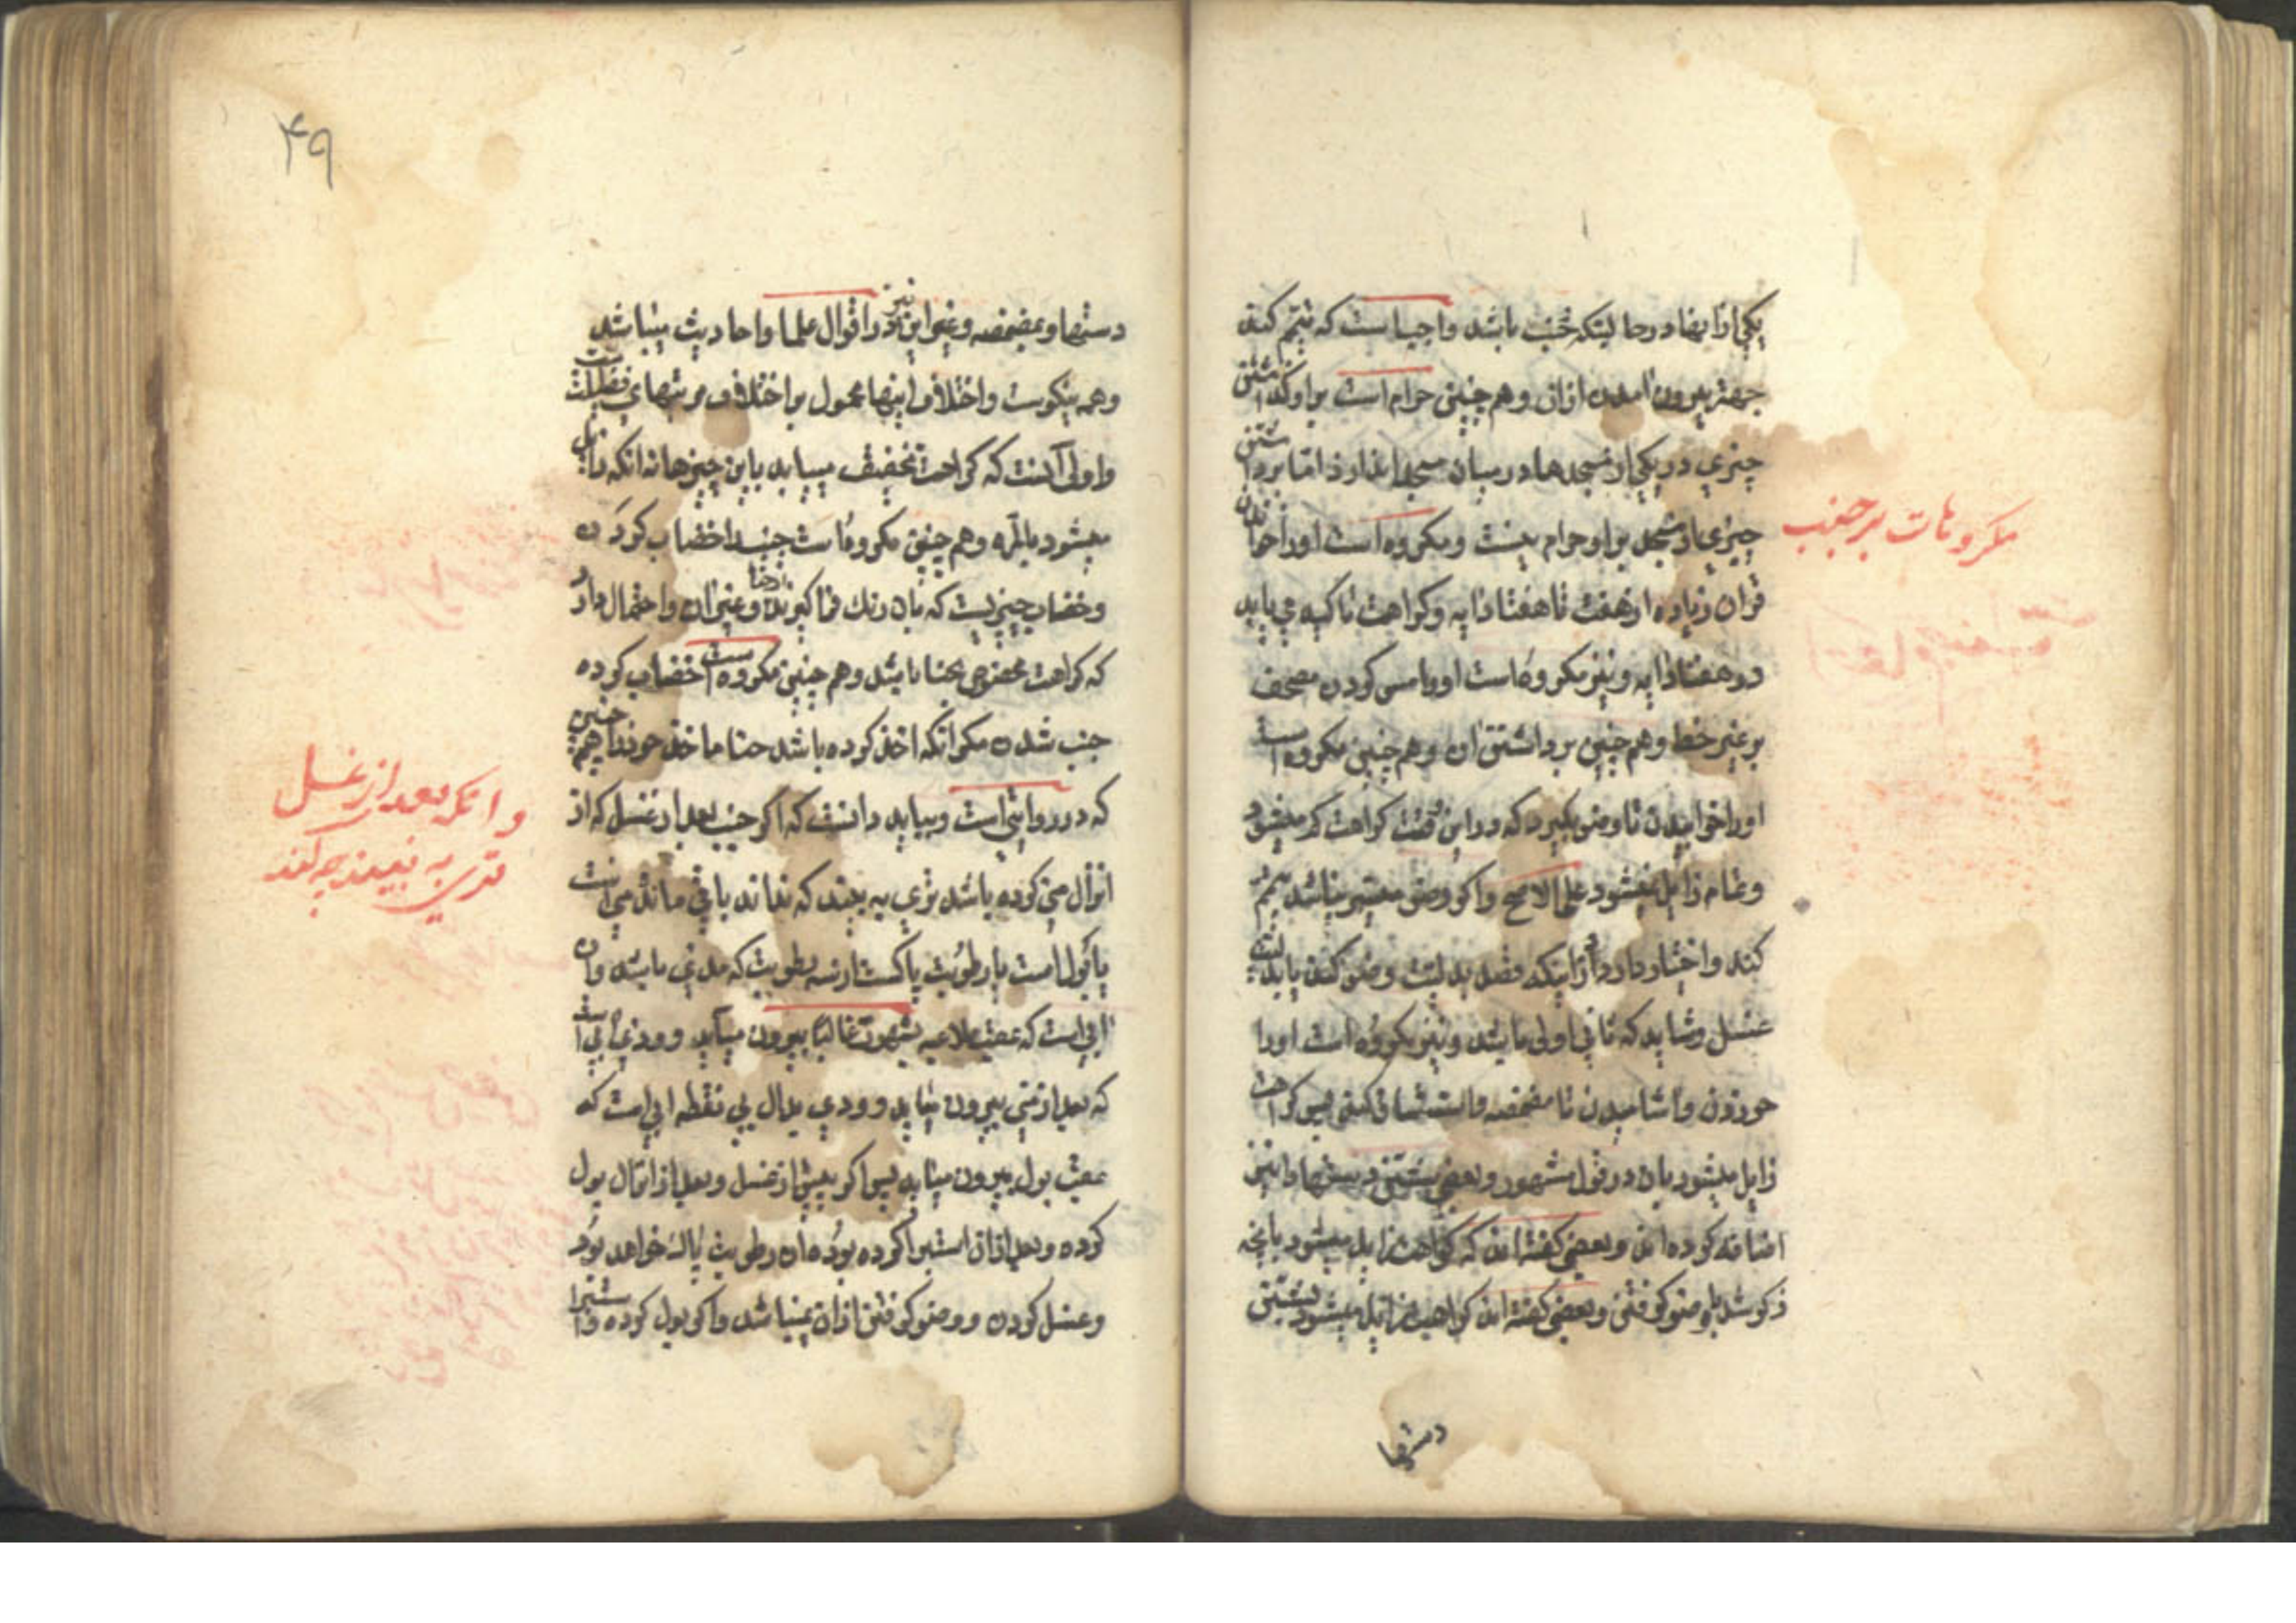 یکی از اینها در حالتیکه جنب باشد واجب است که تیمم کند
جهتر بیرون امدن ازان و هم چنین حرام است بر او گذاشتن
چیزی در یکی از مسجدها و در میان مسجد اندازد اما برداشتن
چیزی از مسجد بر او حرام نیست و مکروه است او را خواندن
قران زیاده از هفت تا هفتاد ایه و کراهت تاکید می یابد
در هفتاد ایه و نیز مکروه است او را مس کردن مصحف
بر غیر خط و هم چنین برداشتن ان و هم چنین مکروه است
او را خوابیدن تا وضو بگیرد که در این وقت کراهت کم میشود
و تمام زایل نمیشود علی الاصح و اگر وضو میسر نباشد تیمم
کند و اختیار دارد از اینکه قصد بدلیت وضو کند یا بدلیت
غسل و شاید که ثانی اولی باشد و نیز مکروه است او را
خوردن و اشامیدن تا مضمضه و استنشاق کند پس کراهت
زایل میشود بان در قول مشهور و بعضی شستن دستها را نیز
اضافه کرده اند و بعضی گفته اند که کراهت زایل میشود بانچه
ذکر شد یا وضو گرفتن و بعضی گفته اند کراهیت زایل میشود بشستن
دستها
مکروهات بر جنب
۴۹
دستها و مضمضه و غیر این نیز در اقوال علما و احادیث میباشد
و همه نیکوست و اختلاف اینها محمول بر اختلاف مرتبهای فضیلت است
و اولی انست که کراهت تخفیف مییابد باین چیزها نه انکه زایل
میشود بالمره و هم چنین مکروه است جنب را خضاب کردن
و خضاب چیزیست که بان رنک فرا گیرند از حنا و غیر ان و احتمال دارد
که کراهت مخصوص بحنا باشد و هم چنین مکروه است خضاب کرده
جنب شدن مگر انکه اخذ کرده باشد حنا ماخذ خود را هم چنین
که در روایتی است و بباید دانست که اگر جنب بعد از غسل که از
انزال منی کرده باشد تری به بیند که نداند باقی مانده منی است
یا بول است یا رطوبت پاکست از سه رطوبت که مذی باشد و ان
ابی است که عقب ملاعبه بشهوت غالبا بیرون میآید و وذی ابی است
که بعد از منی بیرون میاید و ودی بدال بی نقطه ابی است که
عقب بول بیرون میاید پس اگر پیش از غسل و بعد از انزال بول
کرده و بعد از ان استبرا کرده بوده ان رطوبت پاک خواهد بود
و غسل کردن و وضو گرفتن ازان نمیباشد و اگر بول کرده و استبرا
و انکه بعد از غسل
تری به بیند چه کند